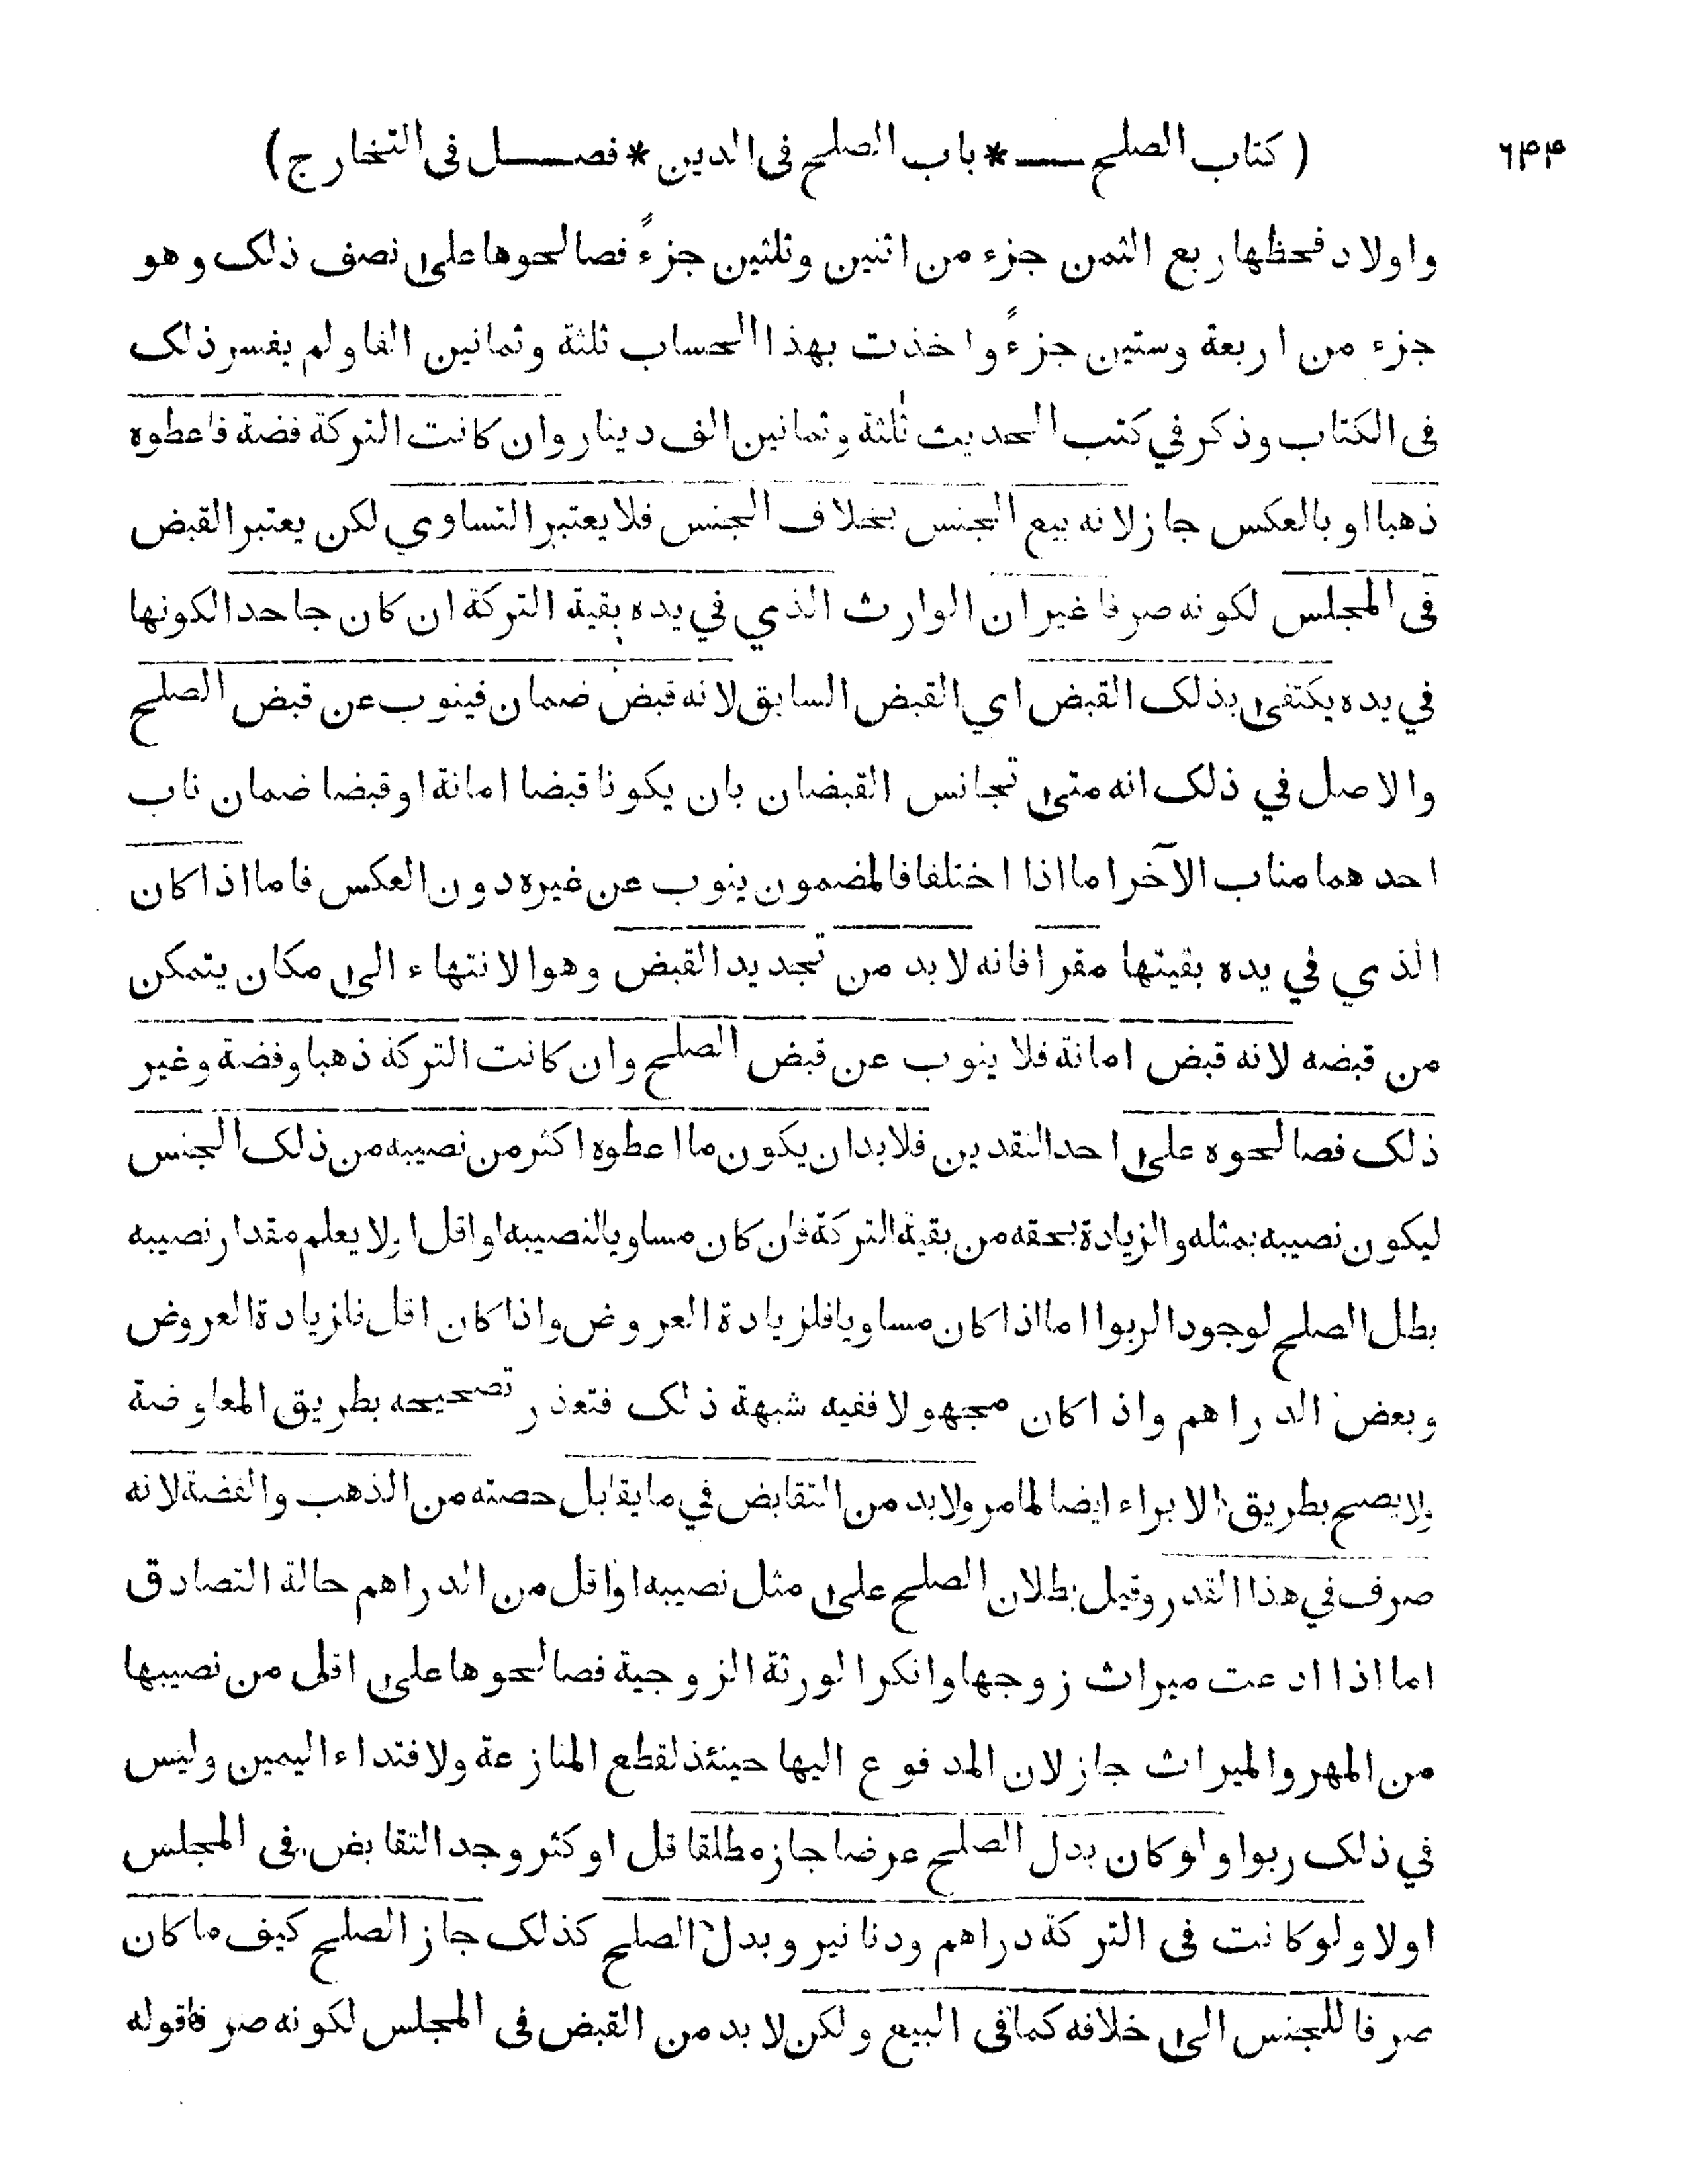 ٦٤٤ ( كتاب الصلح * باب الصلح فى الدين * فصل فى التخارج )
واولاد فحظها ربع الثمن جزء من اثنين وثلثين جزءً فصالحوها على نصف ذلك وهو
جزء من اربعة وستين جزءً واخذت بهذا الحساب ثلثة وثمانين الفا ولم يفسر ذلك
فى الكتاب وذكر في كتب الحديث ثلثة وثمانين الف دينار وان كانت التركة فضة فاعطوه
ذهبا او بالعكس جاز لانه بيع الجنس بخلاف الجنس فلا يعتبر التساوي لكن يعتبر القبض
فى المجلس لكونه صرفا غير ان الوارث الذي في يده بقية التركة ان كان جاحدا لكونها
في يده يكتفى بذلك القبض اي القبض السابق لانه قبض ضمان فينوب عن قبض الصلح
والاصل في ذلك انه متى تجانس القبضان بان يكونا قبضا امانة او قبضا ضمان ناب
احدهما مناب الآخر اما اذا اختلفا فالمضمون ينوب عن غيره دون العكس فاما اذا كان
الذي في يده بقيتها مقرا فانه لا بد من تجديد القبض وهو الانتهاء الى مكان يتمكن
من قبضه لانه قبض امانة فلا ينوب عن قبض الصلح وان كانت التركة ذهبا وفضة وغير
ذلك فصالحوه على احد النقدين فلا بد ان يكون ما اعطوه اكثر من نصيبه من ذلك الجنس
ليكون نصيبه بمثله والزيادة بحقه من بقية التركة فان كان مساويا لنصيبه او اقل او لا يعلم مقدار نصيبه
بطل الصلح لوجود الربوا اما اذا كان مساويا فلزيادة العروض واذا كان اقل فلزيادة العروض
وبعض الدراهم واذا كان مجهولا ففيه شبهة ذلك فتعذر تصحيحه بطريق المعاوضة
ولا يصح بطريق الابراء ايضا لما مر ولا بد من التقابض في ما يقابل حصته من الذهب والفضة لانه
صرف في هذا القدر وقيل بطلان الصلح على مثل نصيبه او اقل من الدراهم حالة التصادق
اما اذا ادعت ميراث زوجها وانكر الورثة الزوجية فصالحوها على اقل من نصيبها
من المهر والميراث جاز لان المدفوع اليها حينئذ لقطع المنازعة ولافتداء اليمين وليس
في ذلك ربوا ولو كان بدل الصلح عرضا جاز مطلقا قل او كثر وجد التقابض فى المجلس
او لا ولو كانت فى التركة دراهم ودنانير وبدل الصلح كذلك جاز الصلح كيف ما كان
صرفا للجنس الى خلافه كما فى البيع ولكن لا بد من القبض فى المجلس لكونه صرفا قوله